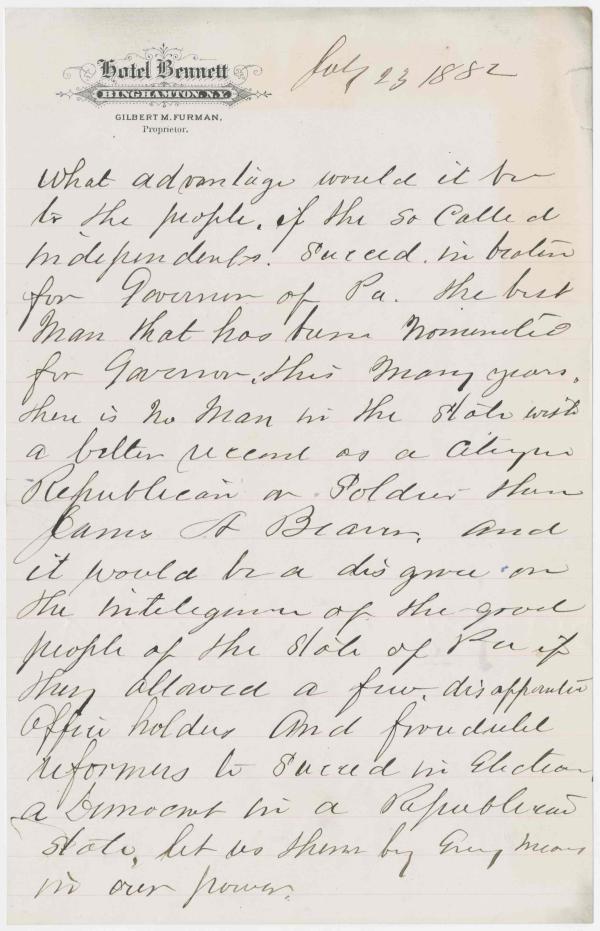 Hotel Bennett
BINGHAMTON, N.Y.
GILBERT M. FURMAN,
Proprietor.
July 23 1882
What advantage would it be
to the people, if the so Called
Independents. Succed. in
for Governor of Pa. the best
Man that has been Nominated
for Governor, this Many years,
there is No Man in the State with
a better record as a Citizen
Republican or Soldier then
James A Beaver, and
it would be a disgrace on
the inteligence of the good
people of the State of Pa if
they allowed a few, disappointed
Office holders And
reformers to Succed in Election
a Democrat in a Republican
State, let us them by Every Means
in our power.